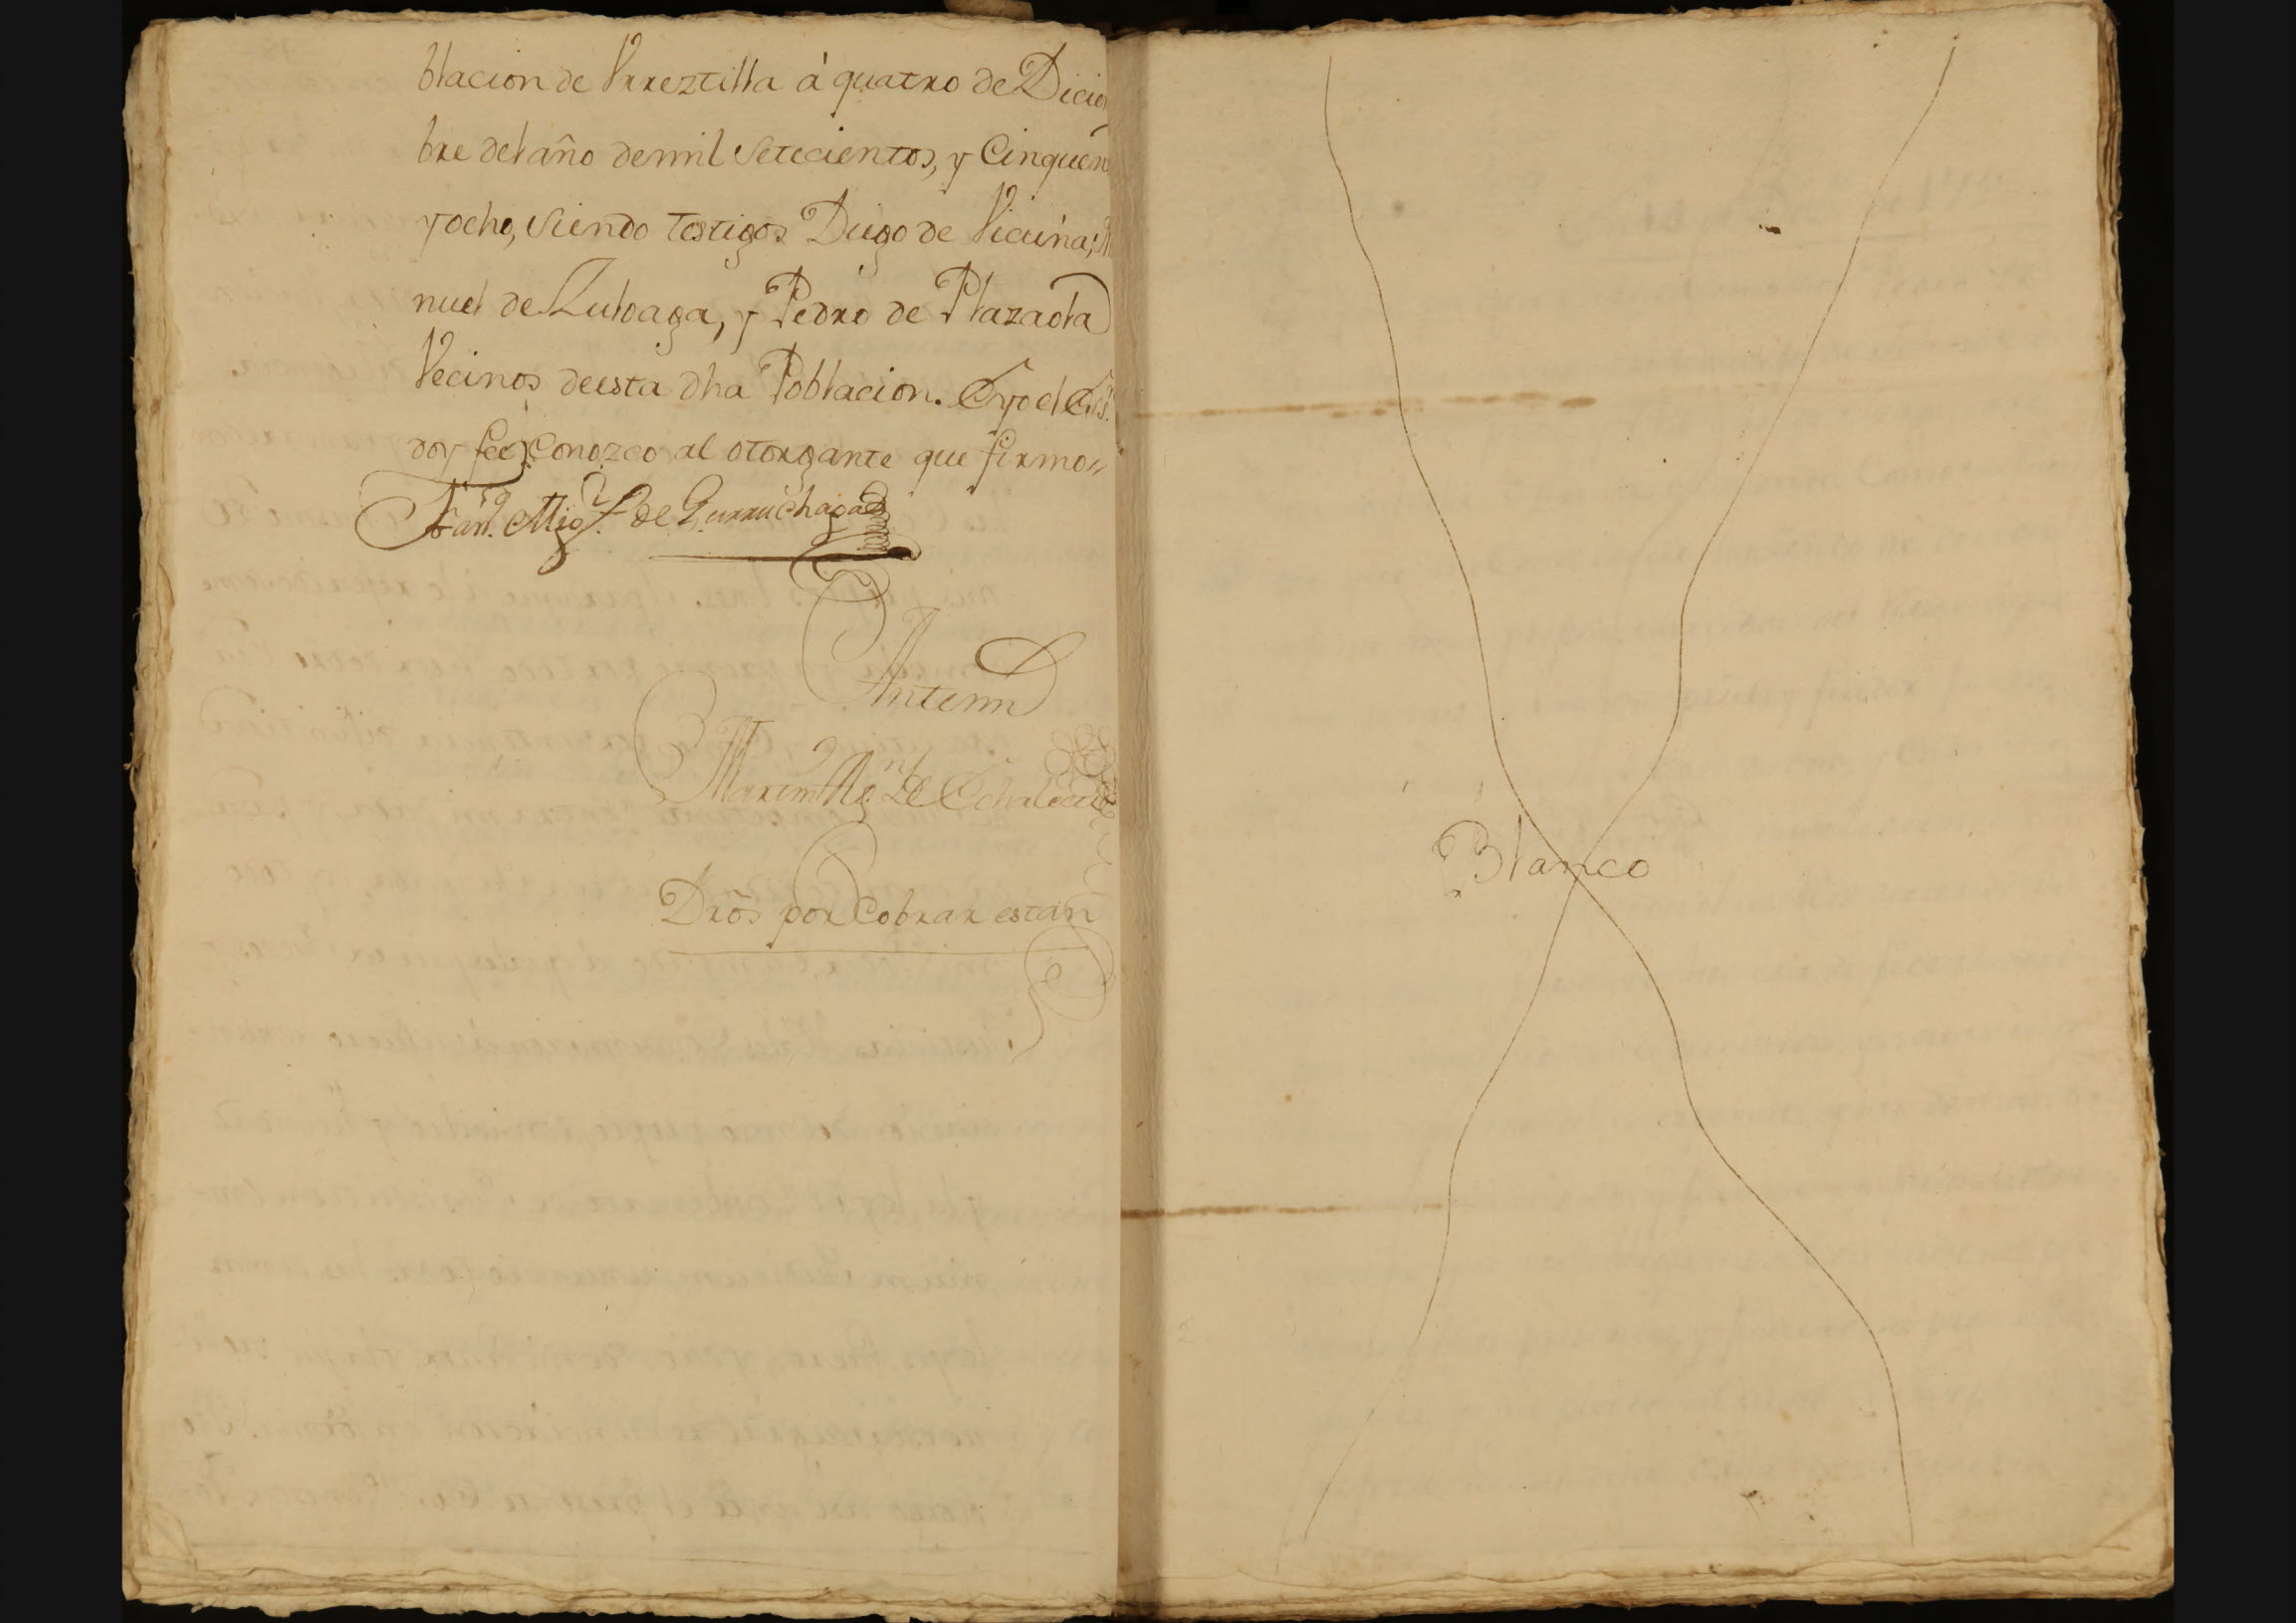 blacion de Vrreztilla á quatro de Dicie
bre del año de mil Setecientos, y Cinquen
y ocho, Siendo Testigos Diego de Vicuña;
nuel de Zuloaga, y Pedro de Plazaola
Vecinos de esta dha Poblacion. E yo el Ess.
doy fee Conozco al otorgante que firmo
Fran.co Mig.l de Gurruchaga
Antemi
Martin Ag.n de
Drõs por Cobrar estan
Blanco